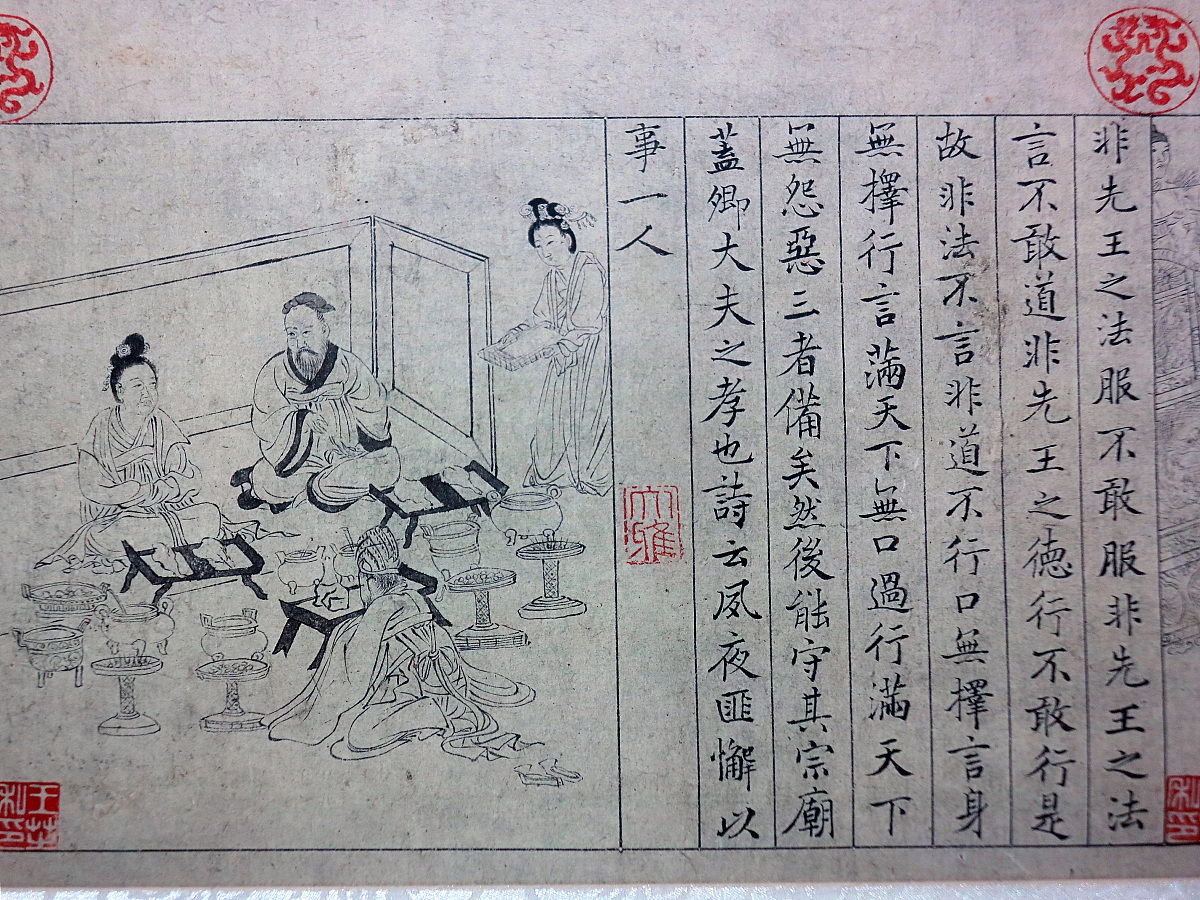 非先王之法服不敢服非先王之法
言不敢道非先王之徳行不敢行是
故非法不言非道不行口無擇言身
無擇行言滿天下無口過行滿天下
無怨惡三者備矣然後能守其宗廟
蓋卿大夫之孝也詩云夙夜匪懈以
事一人
大雅